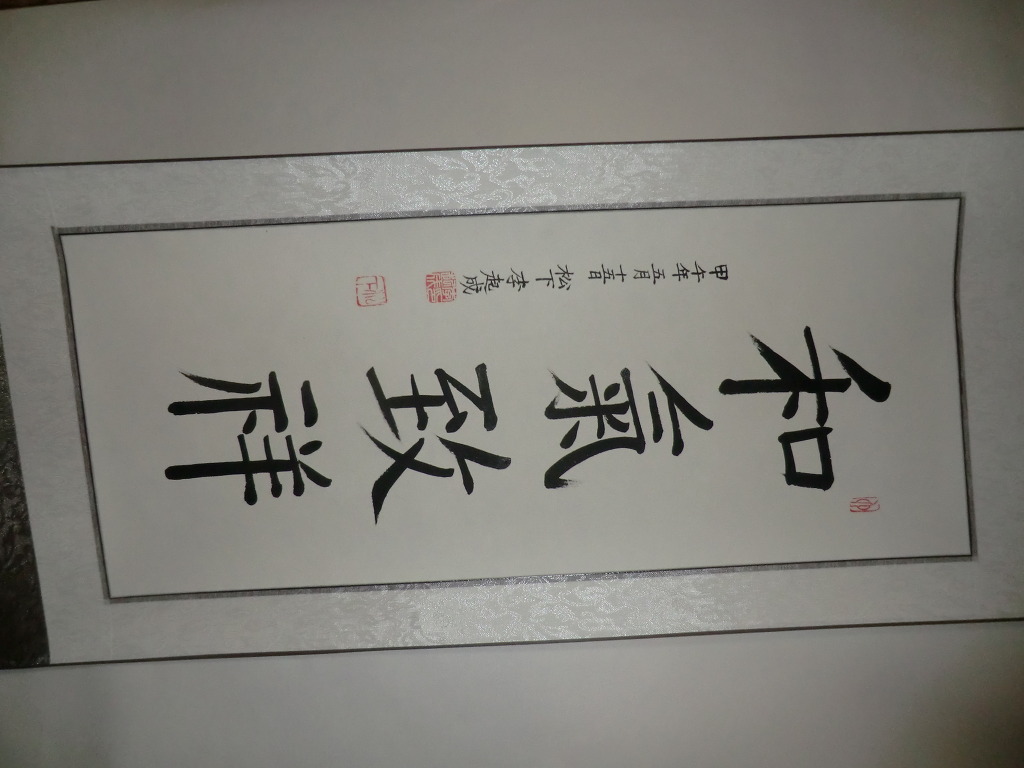 和氣致祥
甲午年五月十五日松下李虔成